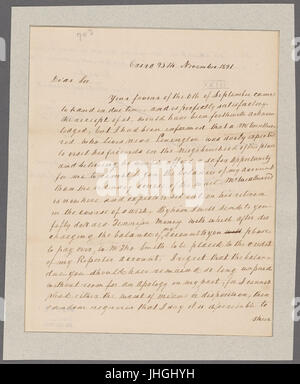 Cairo 23th November 1821
Dear Sir
Your favour of the 6th of September came
to hand in due time, and is perfectly satisfactory.
The receipt of it, would have been forthwith acknow
ledged, but I had been informed that a Mr
who lives near Lexington was daily expected
to visit his friends in the Neighbourhood of this place
and he would a safe opportunity
for me to remit you the balance of my account
than the ordinary course of the mail. Mr
is now here and expects to set out on his return
in the course of a week. By him I will send to you
fifty dollars Tennessee Money which after dis
charging the balance of account you please
to pay over to Mr Tho Smith to be placed to the credit
of my Reporter account. I regret that the balance
due you should have remained so long unpaid
without room for an apology on my part, for I cannot
plead either the want of means or disposition, their
candour requires that I say it is ascribable to
sheer
alamy
Image ID: JHGHYH
www.alamy.com